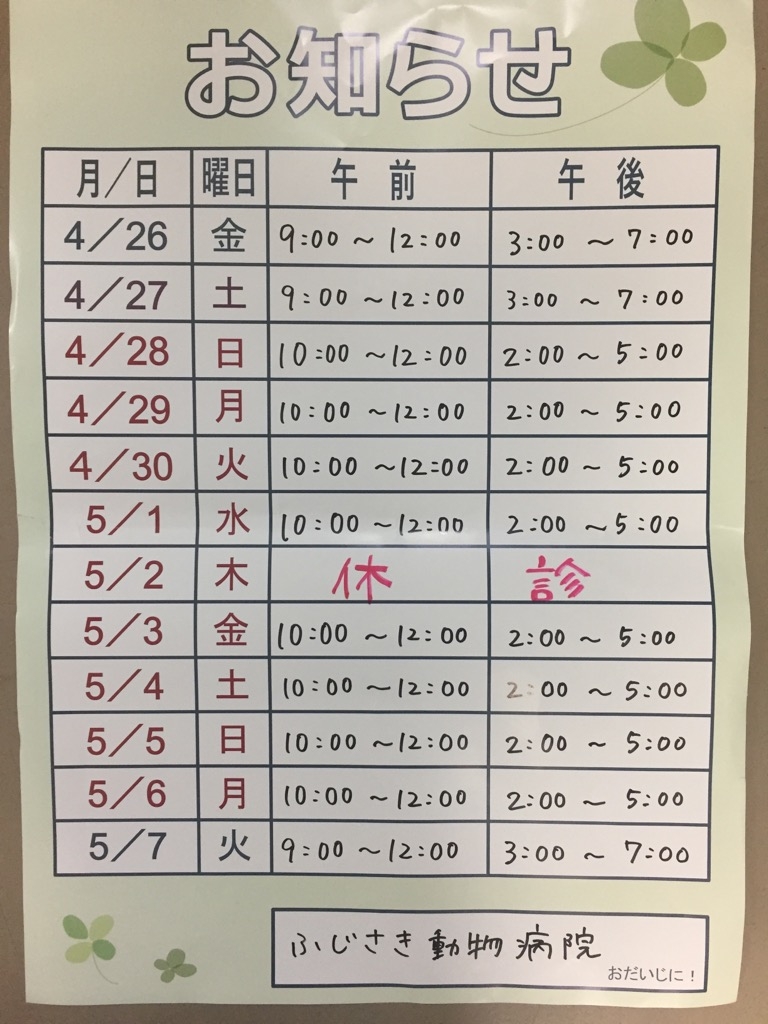 お知らせ
月/日 曜日 午前 午後
4/26 金 9:00 ~ 12:00 3:00 ~ 7:00
4/27 土 9:00 ~ 12:00 3:00 ~ 7:00
4/28 日 10:00 ~ 12:00 2:00 ~ 5:00
4/29 月 10:00 ~ 12:00 2:00 ~ 5:00
4/30 火 10:00 ~ 12:00 2:00 ~ 5:00
5/1 水 10:00 ~ 12:00 2:00 ~ 5:00
5/2 木 休 診
5/3 金 10:00 ~ 12:00 2:00 ~ 5:00
5/4 土 10:00 ~ 12:00 2:00 ~ 5:00
5/5 日 10:00 ~ 12:00 2:00 ~ 5:00
5/6 月 10:00 ~ 12:00 2:00 ~ 5:00
5/7 火 9:00 ~ 12:00 3:00 ~ 7:00
ふじさき動物病院
おだいじに!